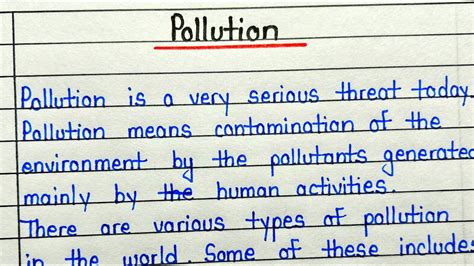 Pollution
Pollution is a very serious threat today.
Pollution means contamination of the
environment by the pollutants generated
mainly by the human activities.
There are various types of pollution
in the world. Some of these includes